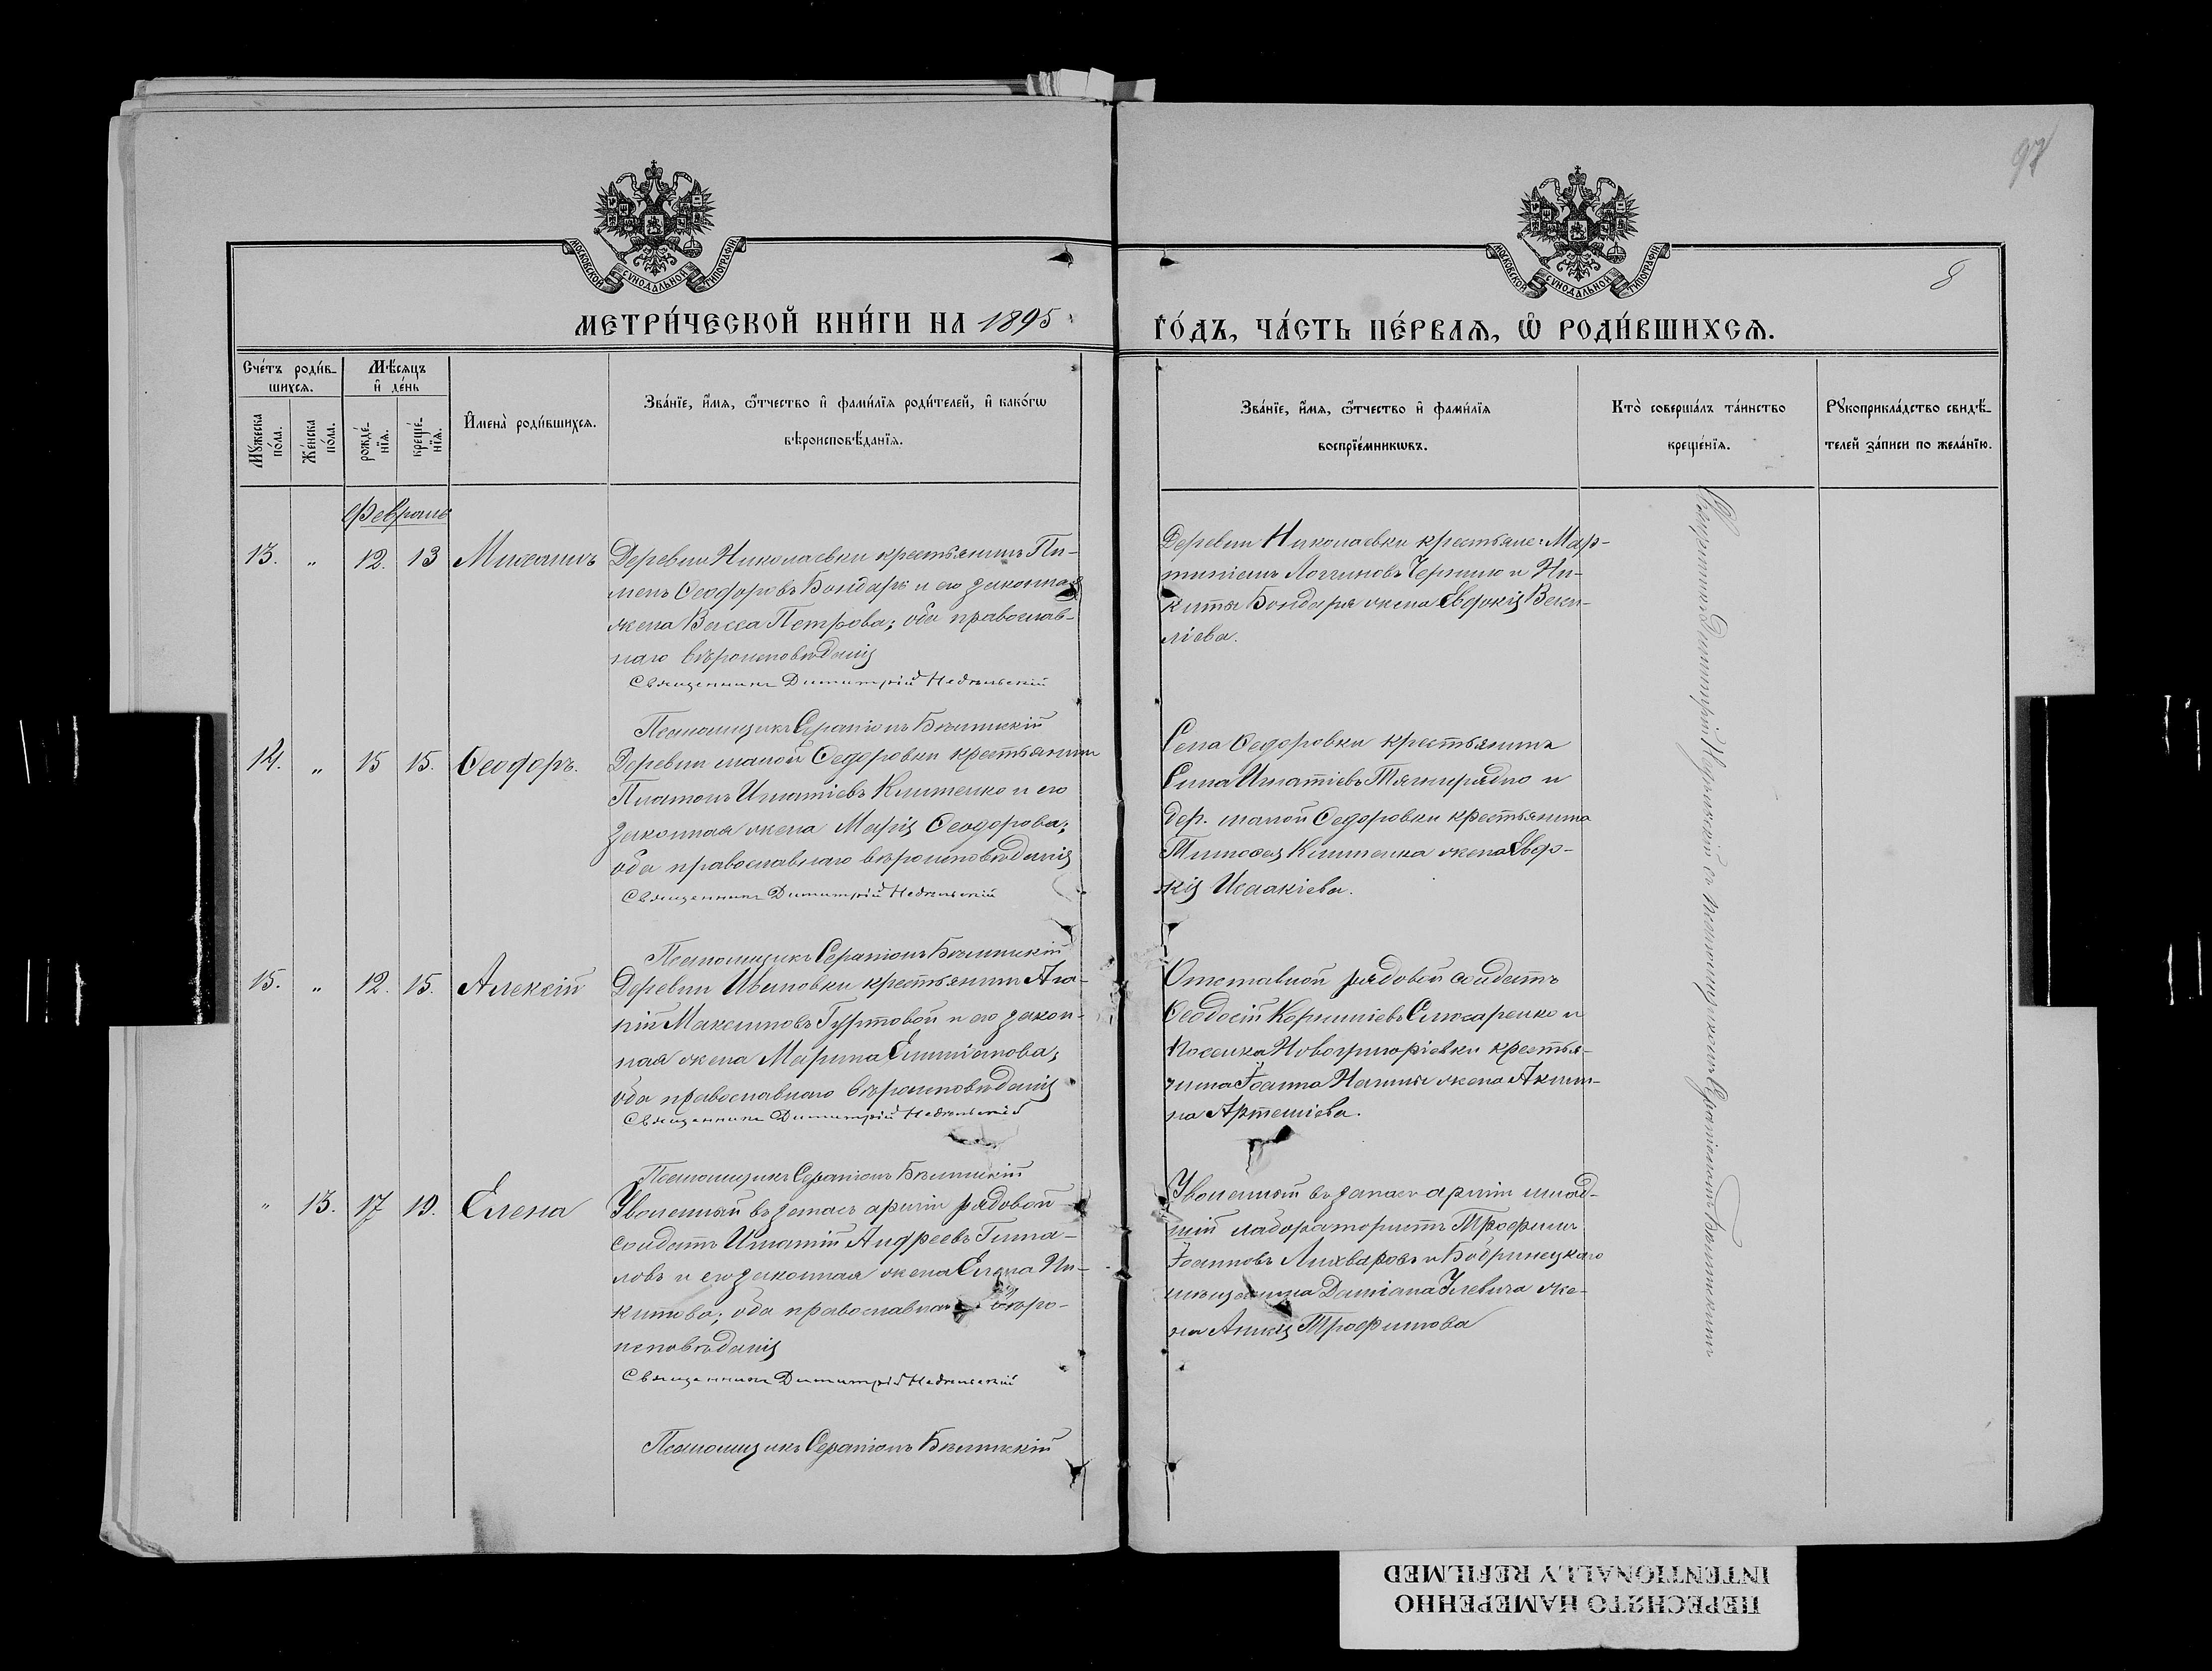 97
8
МОСКОВСКОЙ СУНОДАЛЬНОЙ ТИПОГРАФІИ
МОСКОВСКОЙ СУНОДАЛЬНОЙ ТИПОГРАФІИ
МЕТРИ́ЧЕСКОЙ КНИ́ГИ НА 1895 ГО́ДЪ, ЧА́СТЬ ПЕ́РВАѦ, Ѡ҆ РОДИ́ВШИХСѦ.
Сче́тъ роди́в-
шихсѧ.
Мꙋ́жеска по́ла.
Же́нска по́ла.
Мѣ́сѧцъ
и҆ де́нь
рожде́-
нїѧ.
креще́-
нїѧ.
И҆мена̀ роди́вшихсѧ.
Зва́нїе, и҆́мѧ, ѻ҆́тчество и҆ фами́лїѧ роди́телей, и҆ како́гѡ
вѣроисповѣ́данїѧ.
Зва́нїе, и҆́мѧ, ѻ҆́тчество и҆ фами́лїѧ
воспрїе́мникѡвъ.
Кто̀ соверша́лъ та́инство
креще́нїѧ.
Рꙋкоприкла́дство свидѣ́-
телей за́писи по жела́нїю.
Февраль
13. „ 12. 13 Михаилъ
Деревни Николаевки крестьянинъ Пи-
менъ Ѳеодоровъ Бондарь и его законная
жена Васса Петрова; оба православ-
наго вѣроисповѣданія
Священникъ Димитрій Недѣльскій
Псаломщикъ Серапіонъ Бѣлинскій
Деревни Николаевки крестьяне: Мар-
тиніанъ Логгиновъ Чернило и Ни-
киты Бондаря жена Евфимія Васи-
ліева.
14. „ 15 15. Ѳеодоръ.
Деревни малой Ѳедоровки крестьянинъ
Платонъ Игнатіевъ Клименко и его
законная жена Марія Ѳеодорова;
оба православнаго вѣроисповѣданія
Священникъ Димитрій Недѣльскій
Псаломщикъ Серапіонъ Бѣлинскій
Села Ѳедоровки крестьянинъ
Сила Игнатіевъ Тягнирядно и
дер. малой Ѳедоровки крестьянина
Тимоѳея Клименка жена Евдо-
кія Исаакіева.
15. „ 12. 15. Алексій
Деревни Ивановки крестьянинъ Ага-
пій Максимовъ Гуртовой и его закон-
ная жена Марина Емиліанова;
оба православнаго вѣроисповѣданія
Священникъ Димитрій Недѣльскій
Псаломщикъ Серапіонъ Бѣлинскій
Отставной рядовой солдатъ
Ѳеодосій Корниліевъ Слюсаренко и
поселка Новогригоріевки крестья-
нина Іоанна жена Акили-
на Артеміева.
„ 13. 17 19. Елена
Уволенный въ запасъ арміи рядовой
солдатъ Игнатій Андреевъ
и его законная жена Елена Ни-
китова; оба православнаго вѣро-
исповѣданія
Священникъ Димитрій Недѣльскій
Псаломщикъ Серапіонъ Бѣлинскій
Уволенный въ запасъ арміи млад-
шій лаборатористъ Трофимъ
Іоанновъ Лихваровъ и Бобринецкаго
мѣщанина Даміана Илевича же-
на Анна Трофимова
Священникъ Димитрій Недѣльскій съ псаломщикомъ Серапіономъ Бѣлинскимъ
ПЕРЕСНЯТО НАМЕРЕННО
INTENTIONALLY REFILMED